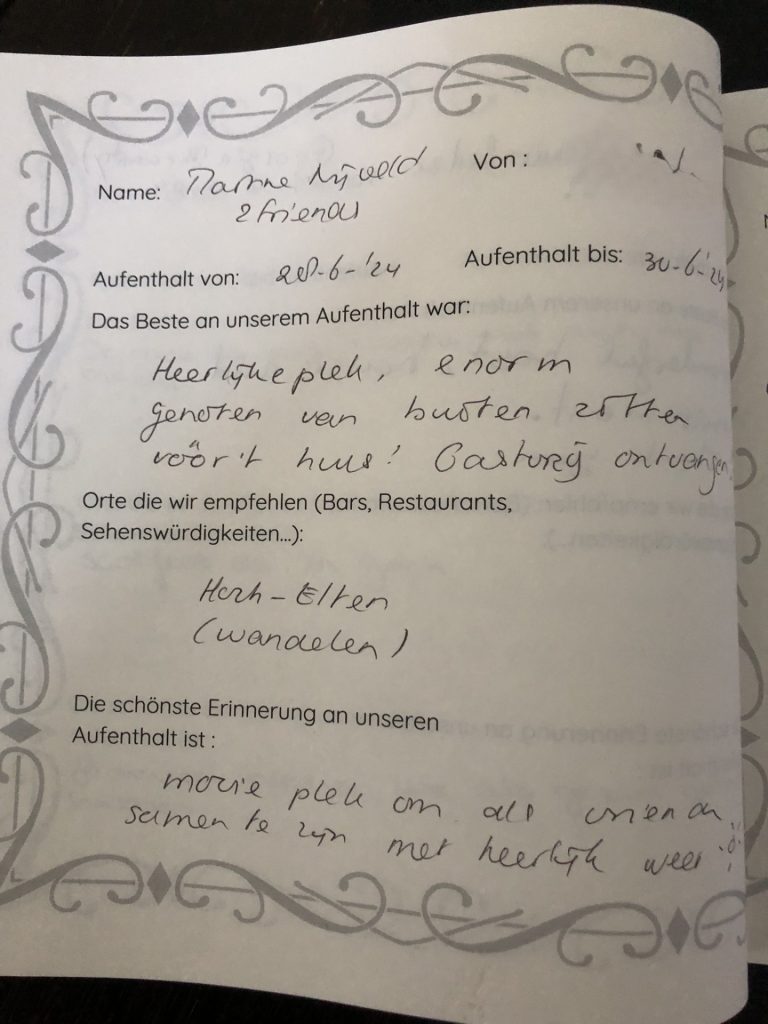 Name: Martine Nijveld
2 friends
Von :
Aufenthalt von: 28-6-'24
Aufenthalt bis: 30-6-'24
Das Beste an unserem Aufenthalt war:
Heerlijke plek, enorm
genoten van buiten zitten
vóór 't huis! Gastvrij ontvangen
Orte die wir empfehlen (Bars, Restaurants,
Sehenswürdigkeiten...):
Hoch-Elten
(wandelen)
Die schönste Erinnerung an unseren
Aufenthalt ist :
mooie plek om als vrienden
samen te zijn met heerlijk weer